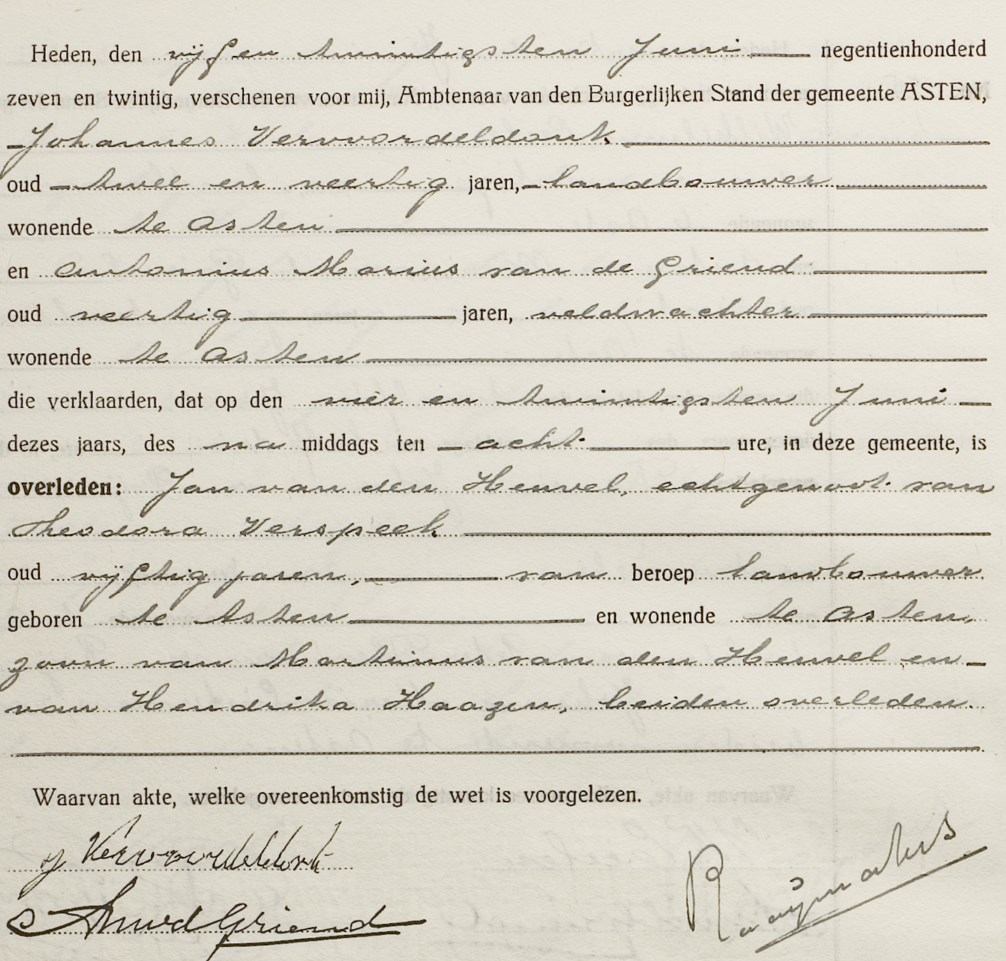 Heden, den vijf en twintigsten Juni negentienhonderd
zeven en twintig, verschenen voor mij, Ambtenaar van den Burgerlijken Stand der gemeente ASTEN,
Johannes Vervoordeldonk
oud twee en veertig jaren, landbouwer
wonende te Asten
en Antonius Marius van de Griend
oud veertig jaren, veldwachter
wonende te Asten
die verklaarden, dat op den vier en twintigsten Juni
dezes jaars, des na middags ten acht ure, in deze gemeente, is
overleden: Jan van den Heuvel, echtgenoot van
Theodora Verspeek
oud vijftig jaren, van beroep landbouwer
geboren te Asten en wonende te Asten,
zoon van Martinus van den Heuvel en
van Hendrika Haazen, beiden overleden.
Waarvan akte, welke overeenkomstig de wet is voorgelezen.
J Vervoordeldonk
AMvdGriend
Raaijmakers